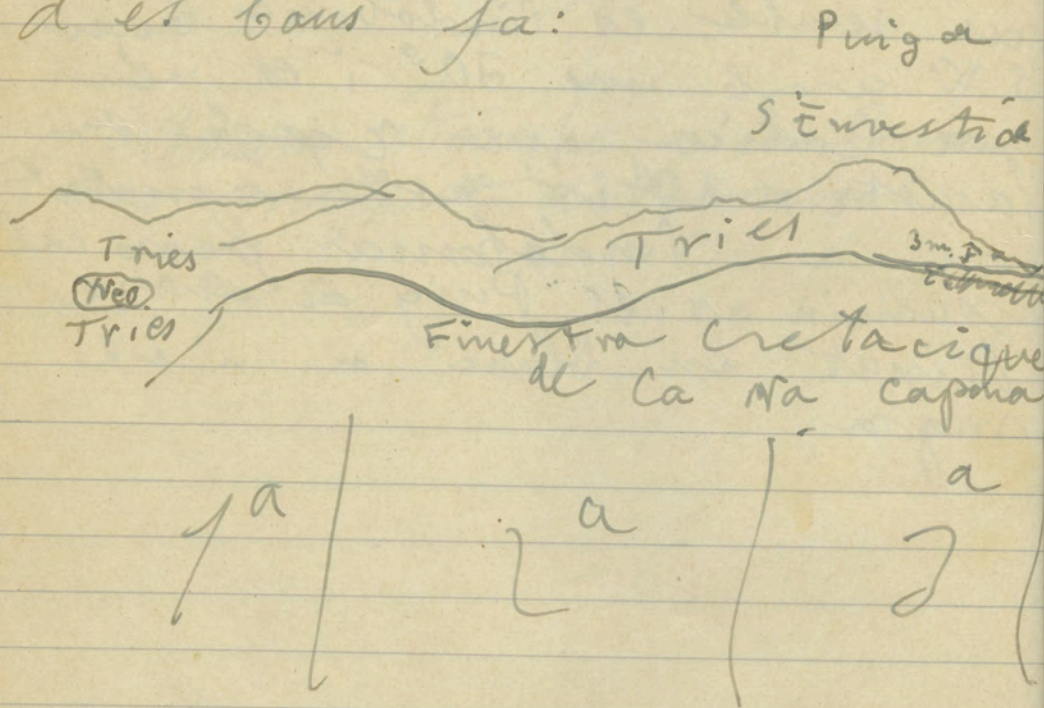 d es bous fa:
Puig de
S'Envestida
Tries
Tries
3 m.
Neo.
Tries
Finestra Cretacique
de Ca Na Capona
1a 2a 3a